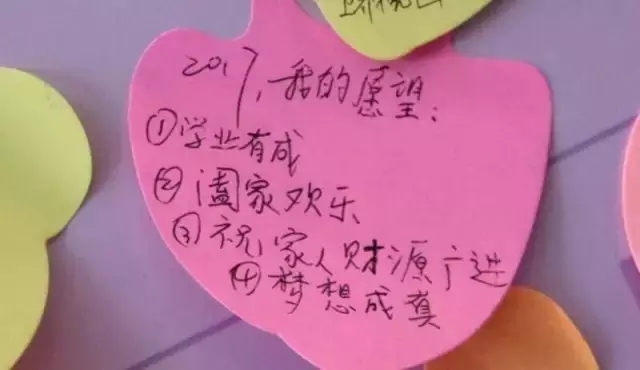 2017,我的愿望:
①学业有成
②阖家欢乐
③祝家人财源广进
④梦想成真